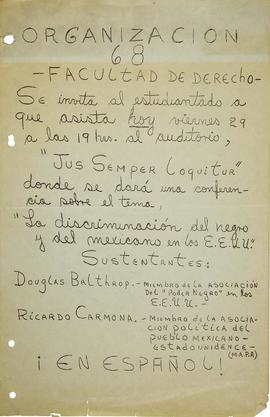 ORGANIZACION
68
-FACULTAD DE DERECHO-
Se invita al estudiantado a
que asista hoy viernes 29
a las 19 hrs. al auditorio,
"Jus Semper Loquitur"
donde se dará una conferen-
cia sobre el tema,
"La discriminación del negro
y del mexicano en los E.E.U.U."
SUSTENTANTES:
DOUGLAS BALTHROP.- MIEMBRO DE LA ASOCIACIÓN
DEL "PODER NEGRO" EN LOS
E.E.U.U.-
RICARDO CARMONA.- MIEMBRO DE LA ASOCIA-
CIÓN POLÍTICA DEL
PUEBLO MEXICANO-
ESTADOUNIDENCE-
(M.A.P.A)
¡EN ESPAÑOL!